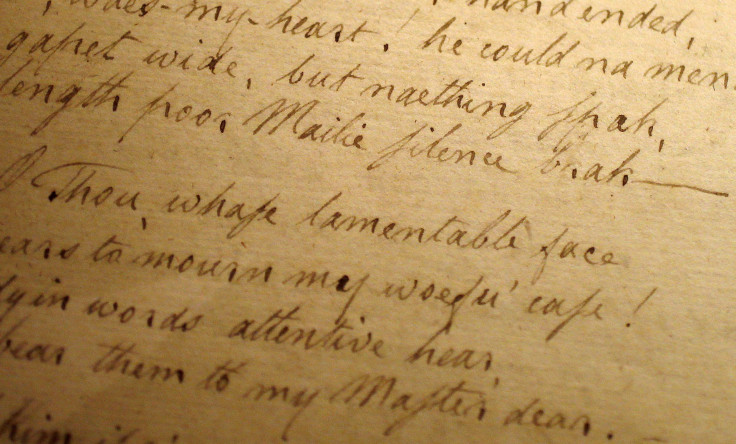 , waes-my-heart! he could na men
gapet wide, but naething ſpak,
length poor Mailie ſilence brak—
O Thou, whaſe lamentable face
ears to mourn my woefu' caſe!
dyin words attentive hear,
bear them to my Maſter dear.